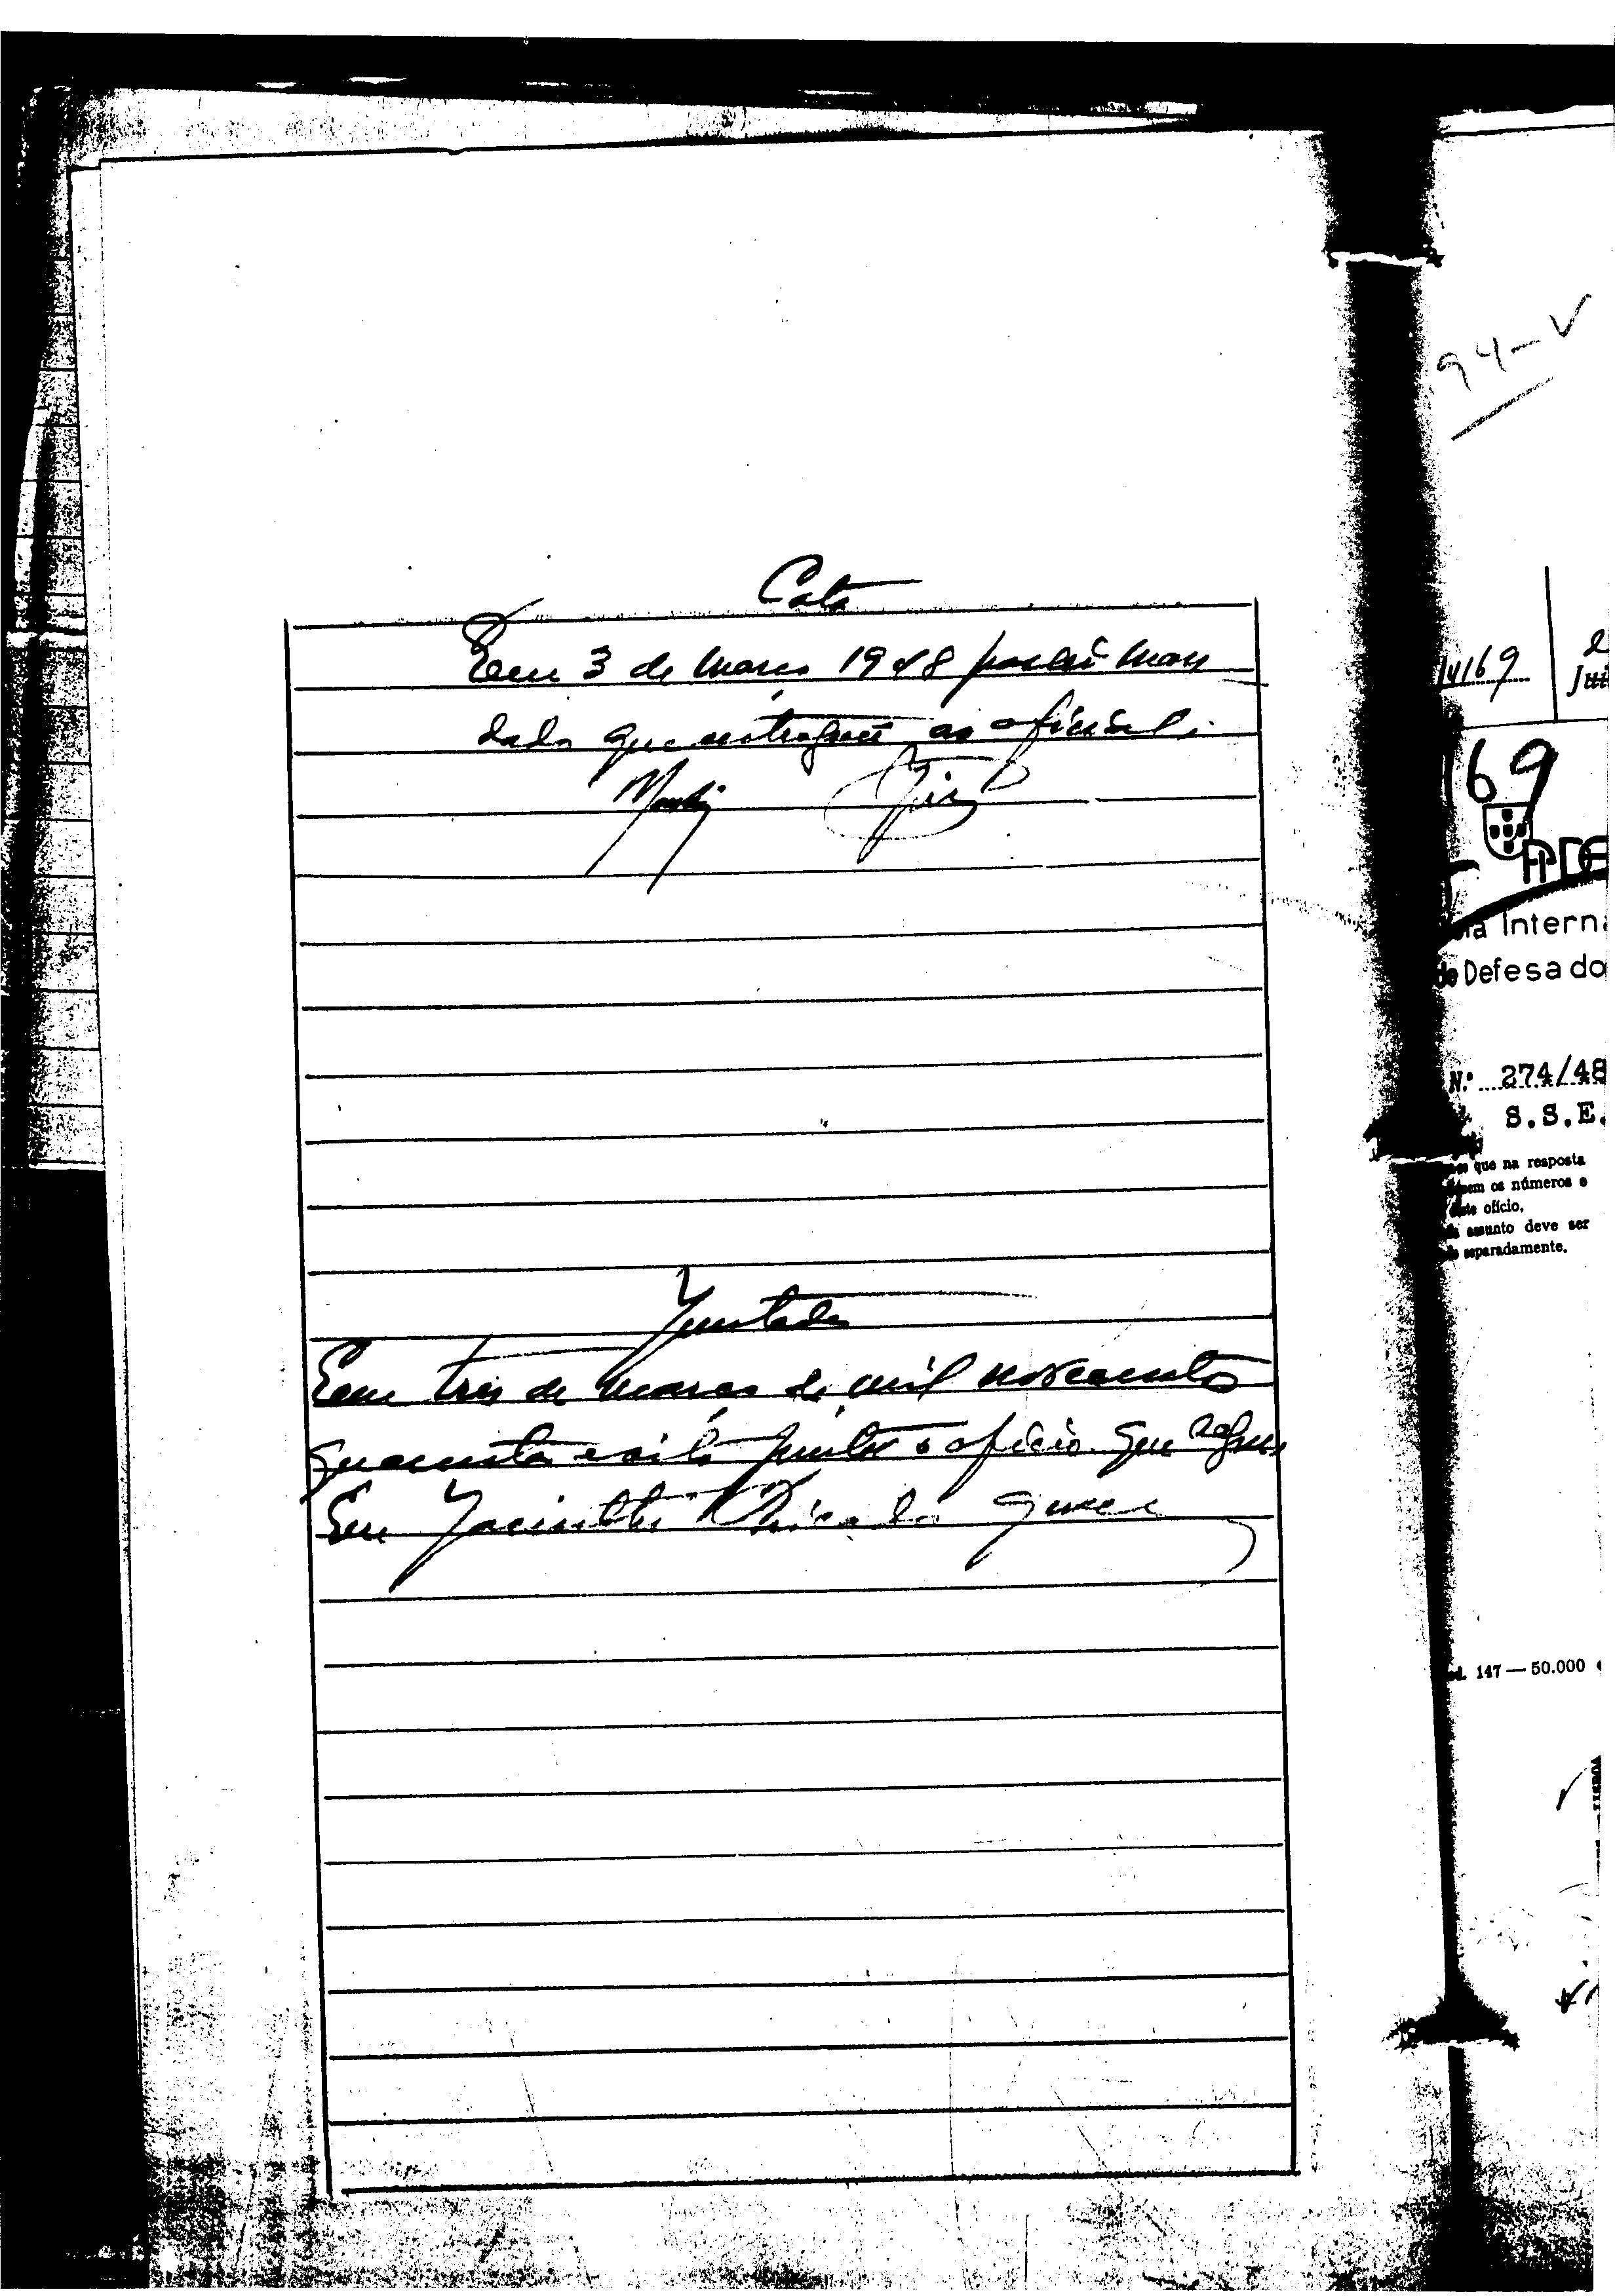 Cota
Em 3 de Março 1948 passei man
dado que entreguei ao oficial.
Juntada
Em tres de março de mil novecentos
quarenta e oito juntei o oficio que segue
Eu Jacintho
94-V
14169
169
PIDE
ia Interna
de Defesa do
N.º 274/48
S.S.E.
que na resposta
os números e
oficio.
assunto deve ser
separadamente.
147 — 50.000